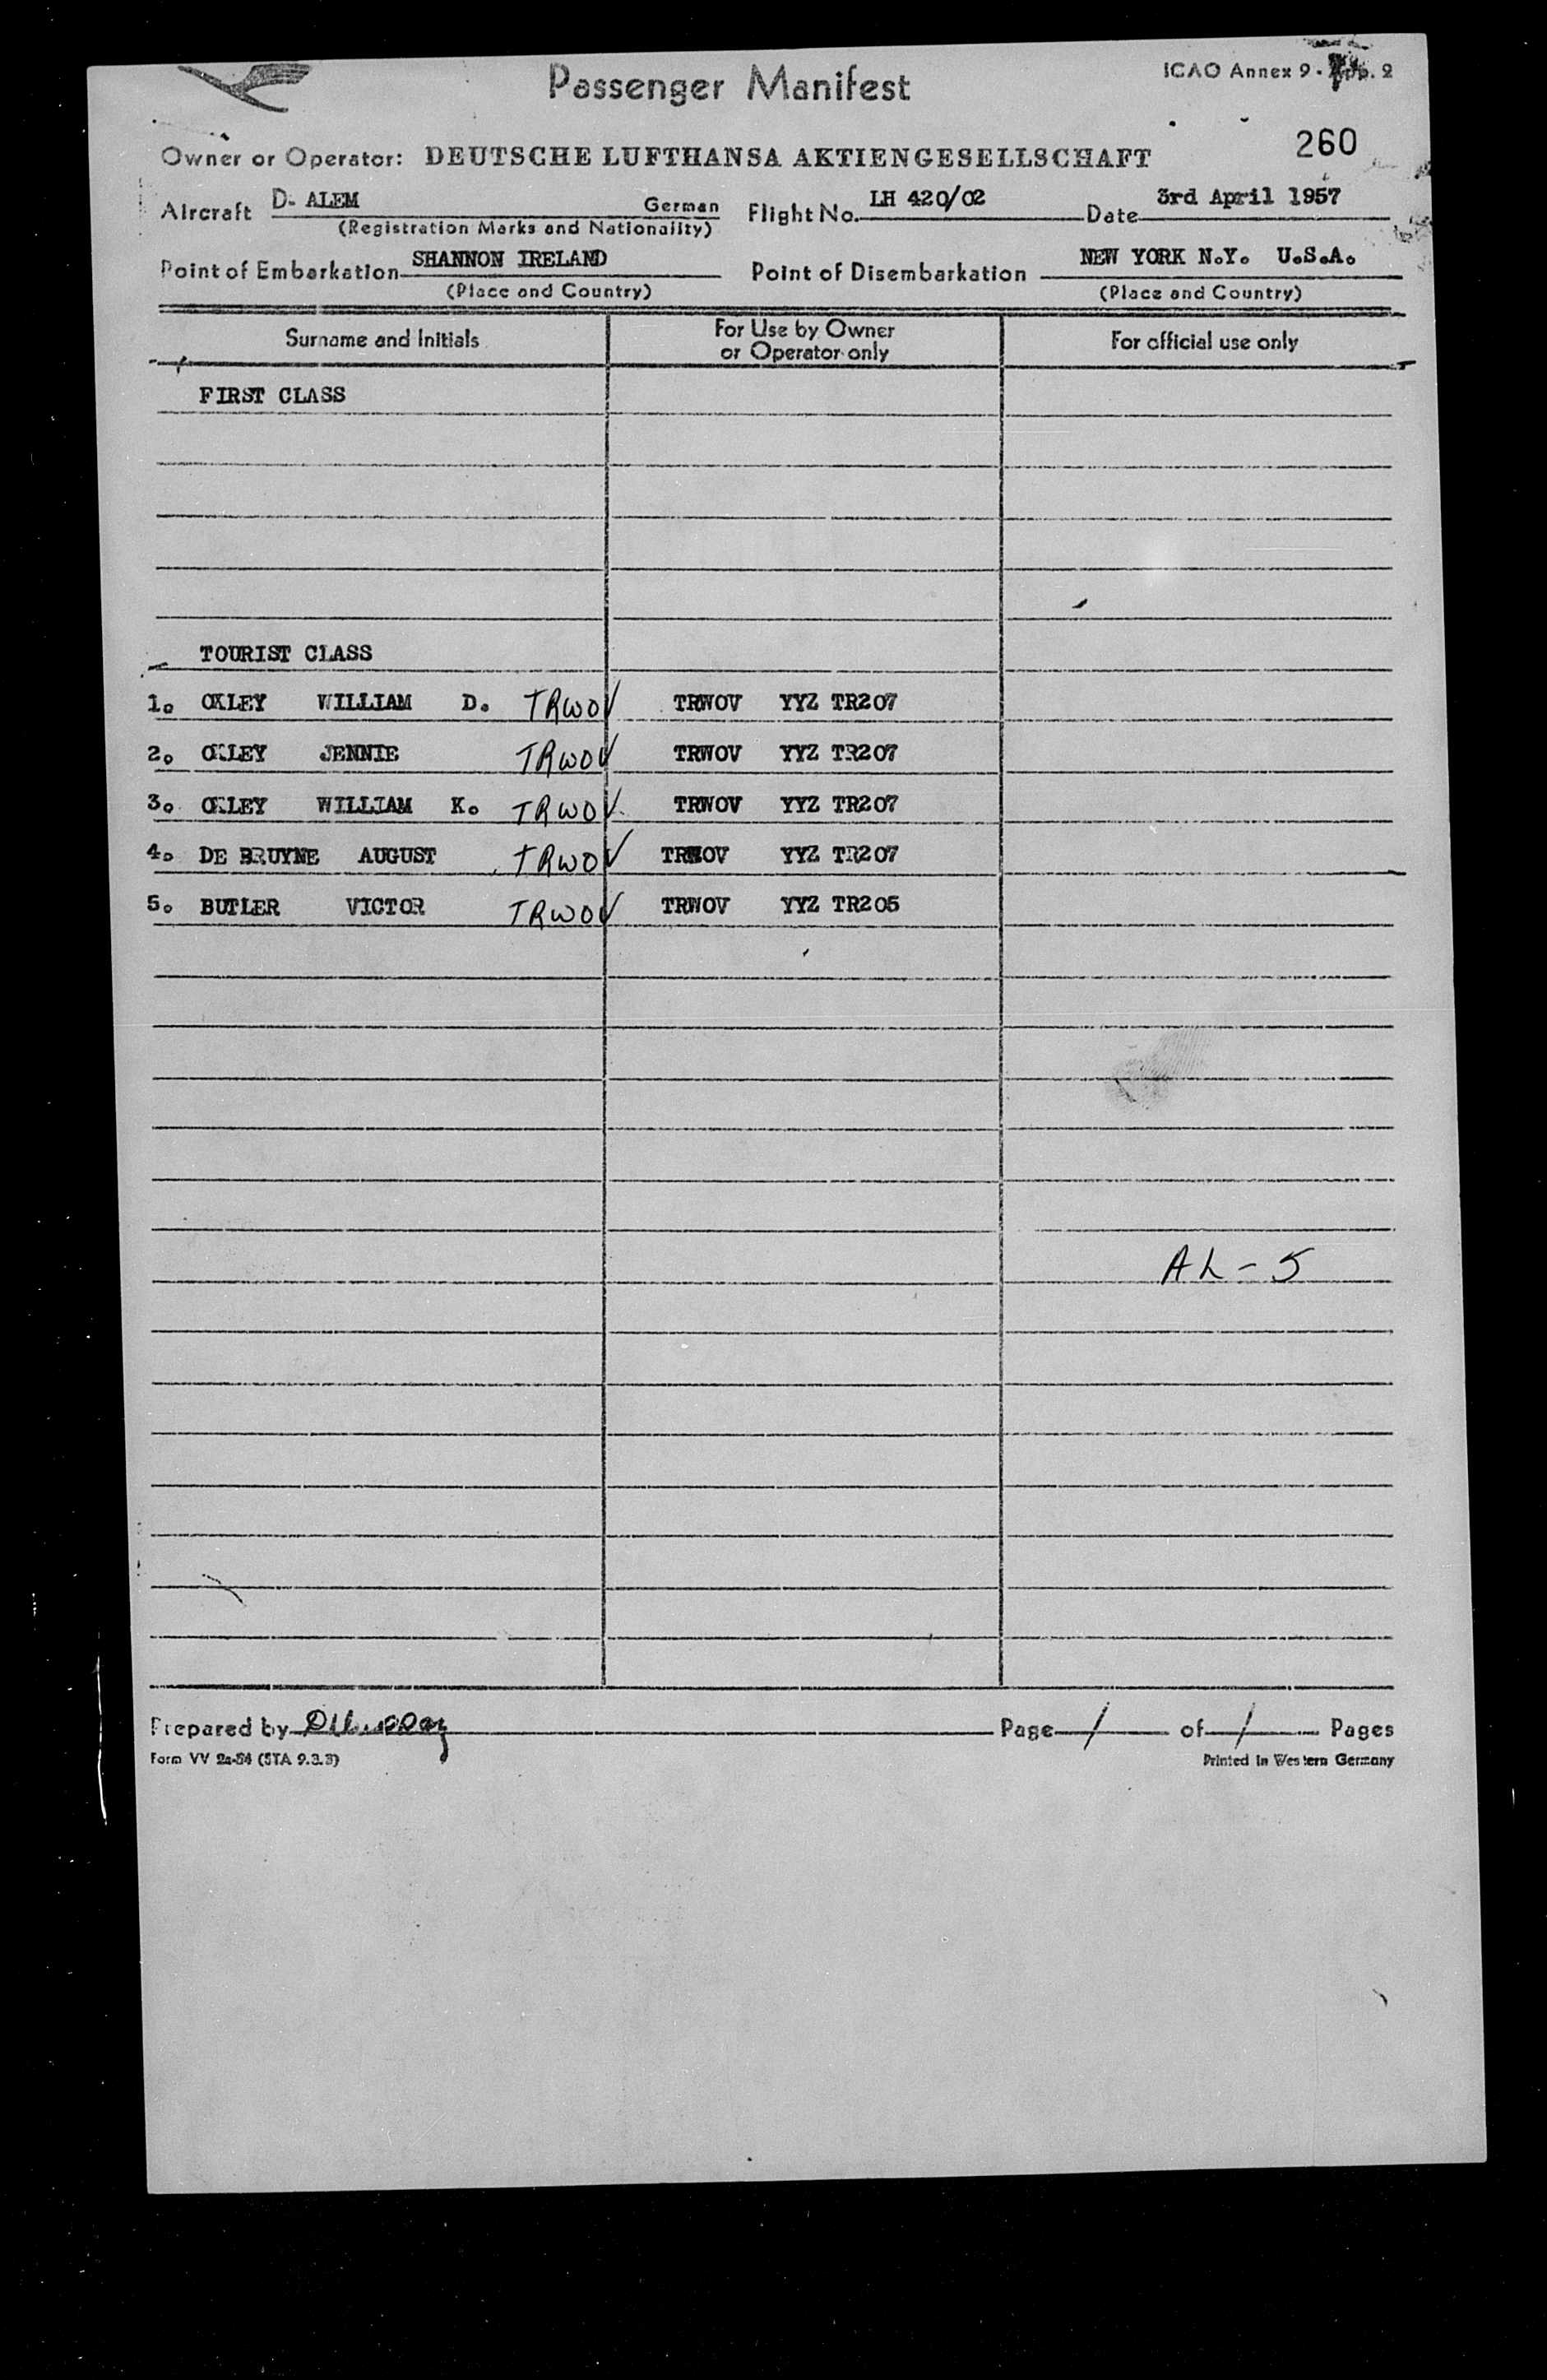 Passenger Manifest
ICAO Annex 9 - App. 2
260
Owner or Operator: DEUTSCHE LUFTHANSA AKTIENGESELLSCHAFT
Aircraft D- ALEM German Flight No. LH 420/02 Date 3rd April 1957
(Registration Marks and Nationality)
Point of Embarkation SHANNON IRELAND Point of Disembarkation NEW YORK N.Y. U.S.A.
(Place and Country) (Place and Country)
Surname and Initials For Use by Owner or Operator only For official use only
FIRST CLASS
TOURIST CLASS
1. OXLEY WILLIAM D. TRWOV TRWOV YYZ TR207
2. OXLEY JENNIE TRWOV TRWOV YYZ TR207
3. OXLEY WILLIAM K. TRWOV TRWOV YYZ TR207
4. DE BRUYNE AUGUST TRWOV TRWOV YYZ TR207
5. BUTLER VICTOR TRWOV TRWOV YYZ TR205
AL - 5
Prepared by Page 1 of 1 Pages
Form VV 2a-54 (STA 9.3.3) Printed in Western Germany